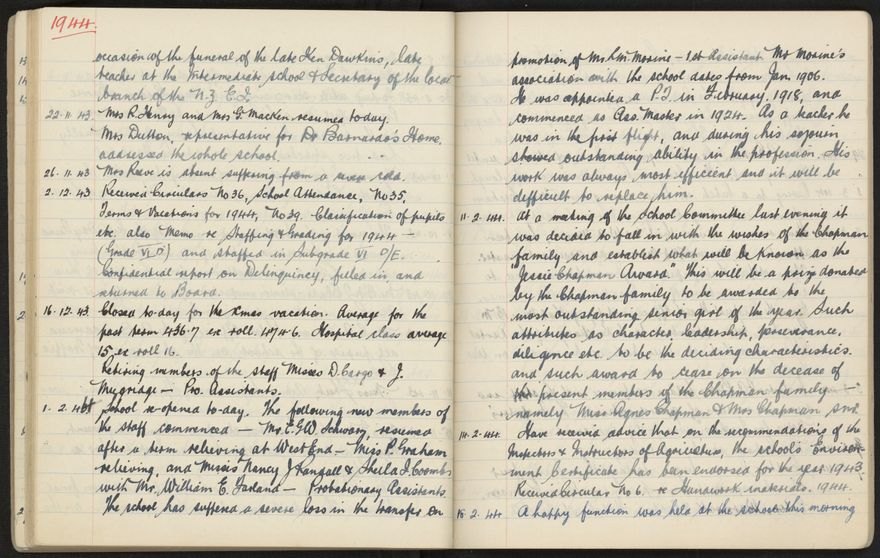 1944.
occasion of the funeral of the late Ken Dawkins, late
teacher at the Intermediate school & Secretary of the local
branch of the N.Z. E.I.
22.11.43 Mrs R. Henry and Mrs G. MacKen resumed today.
Mrs Dutton, representative for Dr Barnardo's Home,
addressed the whole school.
26.11.43 Mrs Reeve is absent suffering from a cold.
2.12.43 Received Circulars No 36, School Attendance, No 35,
Terms & Vacations for 1944, No 39. Classification of pupils
etc. also Memo re Staffing & Grading for 1944 —
(Grade VI D) and staffed in Subgrade VI O/E.
Confidential report on Delinquincy, filled in, and
returned to Board.
16.12.43 Closed to-day for the Xmas vacation. Average for the
past term 436.7 ex roll 474.6. Hospital class average
15 ex roll 16.
Retiring members of the staff Misses D. Cargo & J.
Mugridge — Pro. Assistants.
1.2.44 School re-opened to-day. The following new members of
the staff commenced — Mr E.G.W. Schwass, resumed
after a term relieving at West End — Miss P. Graham
relieving, and Misses Nancy J. Kangall & Sheila J. Coombs
with Mr. William E. Farland — Probationary Assistants.
The school has suffered a severe loss in the transfer on
promotion of Mr. Morine — 1st Assistant. Mr Morine's
association with the school dates from Jan 1906.
He was appointed a P.T. in February, 1918, and
commenced as Ass. Master in 1924. As a teacher he
was in the first flight, and during his sojourn
showed outstanding ability in the profession. His
work was always most efficient and it will be
difficult to replace him.
11.2.44. At a meeting of the School Committee last evening it
was decided to fall in with the wishes of the Chapman
family and establish what will be known as the
"Jessie Chapman Award". This will be a prize donated
by the Chapman family to be awarded to the
most outstanding senior girl of the year. Such
attributes as character, leadership, perseverance,
diligence etc. to be the deciding characteristics.
and such award to cease on the decease of
present members of the Chapman family —
namely Miss Agnes Chapman & Mrs Chapman, snr.
14.2.44. Have received advice that on the recommendations of the
Inspectors & Instructors of Agriculture, the school's Environ-
ment Certificate has been endorsed for the year 1943.
Received Circular No 6. re Handwork materials. 1944.
15.2.44 A happy function was held at the school this morning